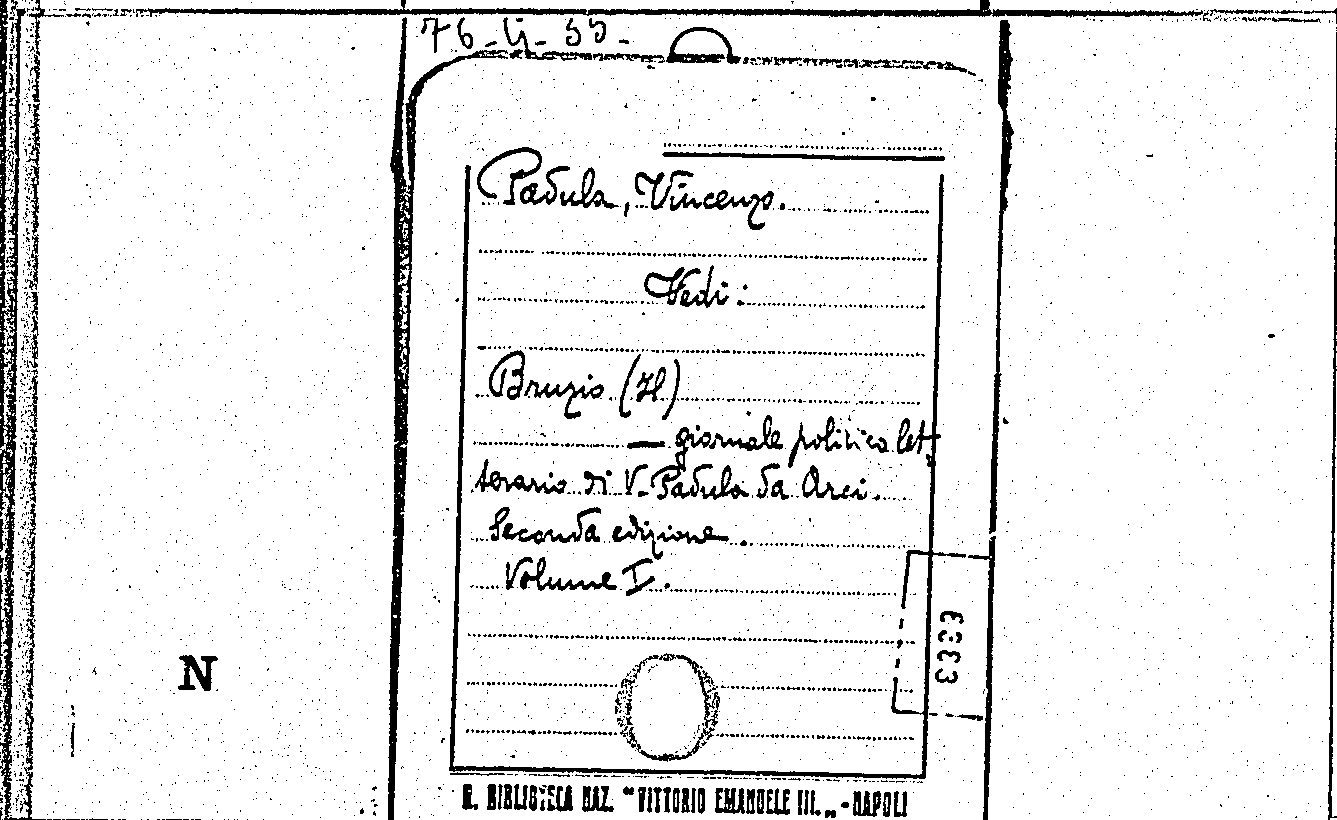 76-G-55-
Padula, Vincenzo.
Vedi:
Bruzio (Il)
— giornale politico let-
terario di V. Padula da Acri.
Seconda edizione.
Volume I.
N
R. BIBLIOTECA NAZ. “VITTORIO EMANUELE III.„ - NAPOLI